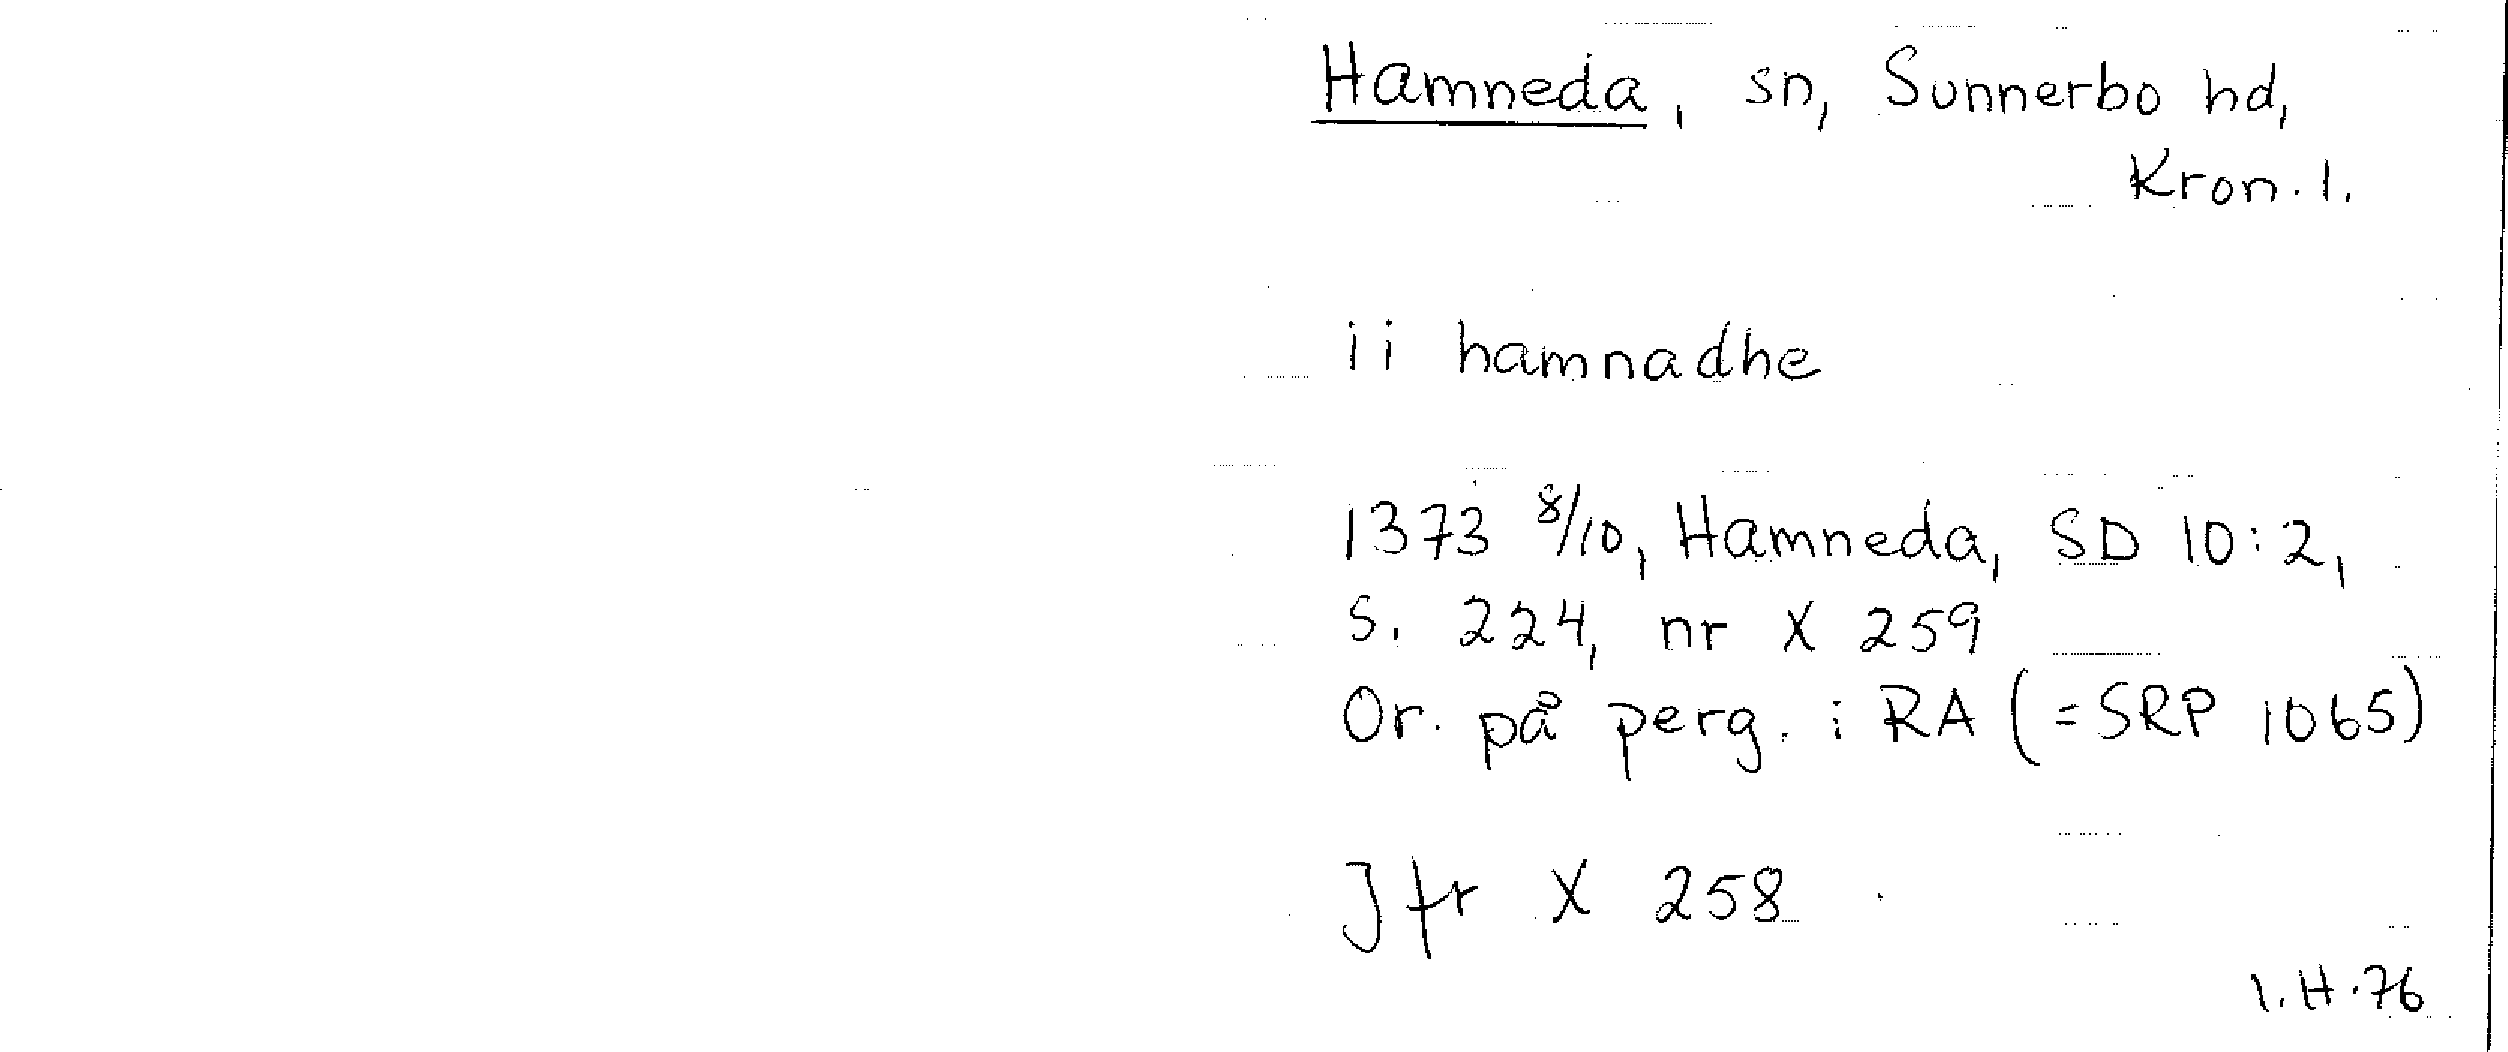 Hamneda, sn, Sunnerbo hd,
Kron. l.
ii hamnadhe
1373 8/10, Hamneda, SD 10:2,
s. 224, nr X 259
Or. på perg. i RA (=SRP 1065)
Jfr X 258
I.H.76